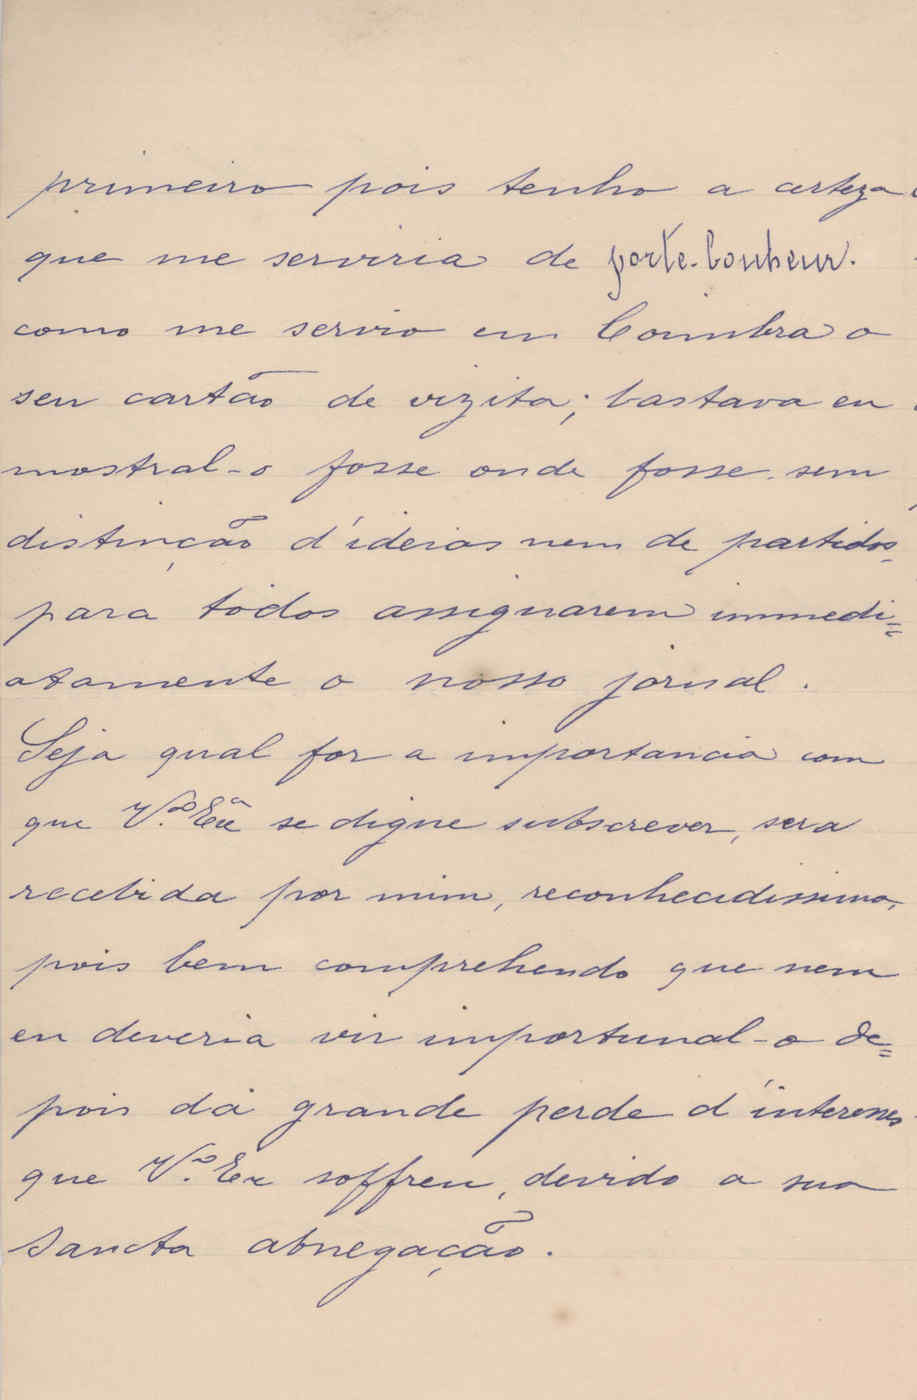 primeiro pois tenho a certeza
que me serviria de porte-bonheur.
como me servio em Coimbra o
seu cartão de vizita; bastava eu
mostral-o fosse onde fosse sem
distinção d'ideias nem de partidos,
para tòdos assignarem immedi=
atamente o nosso jornal.
Seja qual for a importancia com
que V.ª Exª se digne subscrever, sera
recebida por mim, reconhecidissimo,
pois bem comprehendo que nem
eu deveria vir importunal-o de=
pois da grande perde d'interesses
que V.ª Ex soffreu, devido a sua
Sancta abnegação.